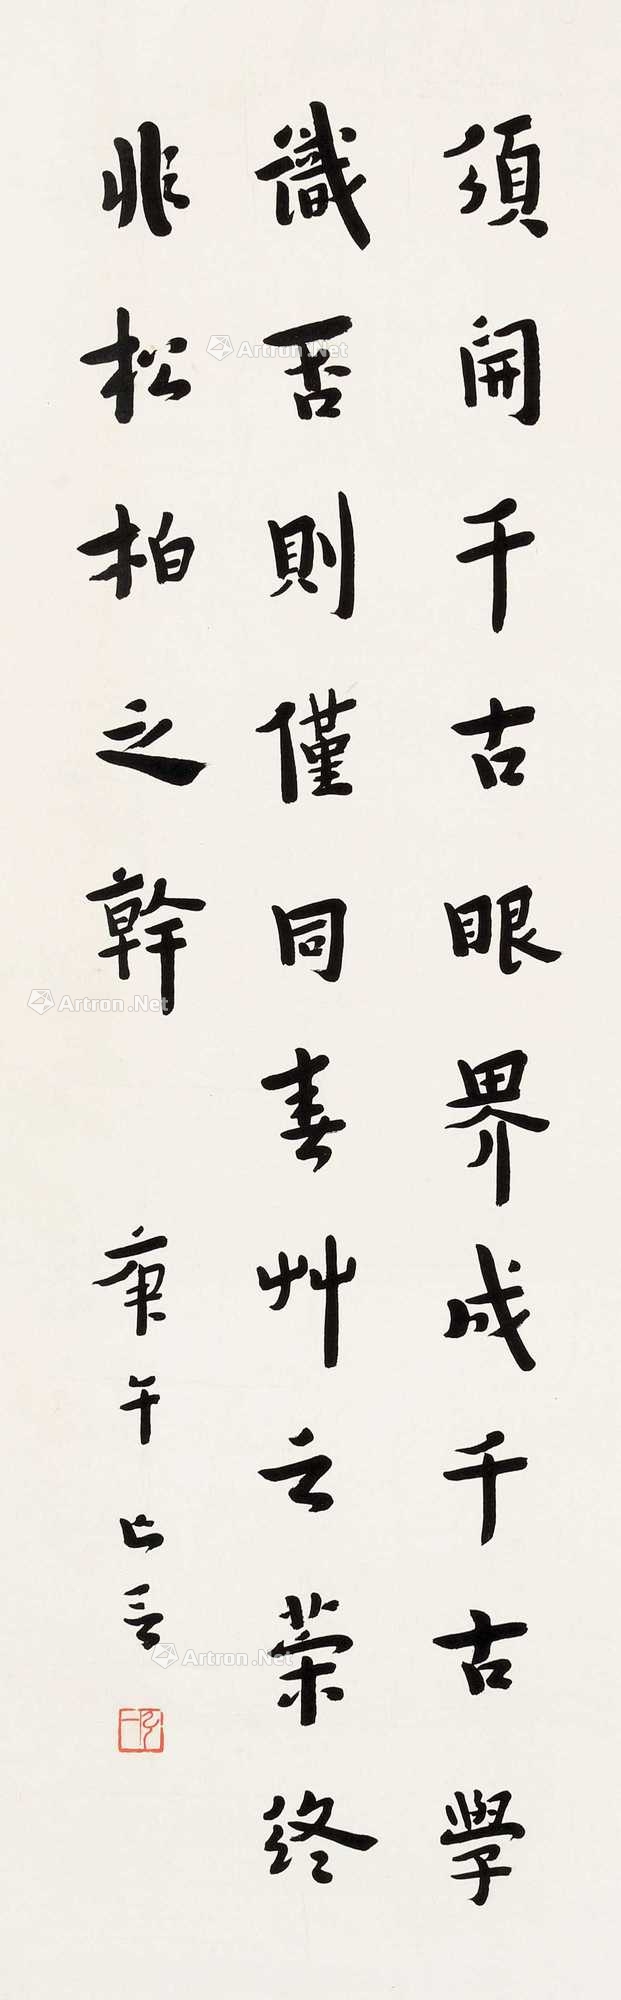 須開千古眼界成千古學
識否則僅同春艸之榮終
非松柏之幹
庚午亡言
弘一
Artron.Net
Artron.Net
Artron.Net